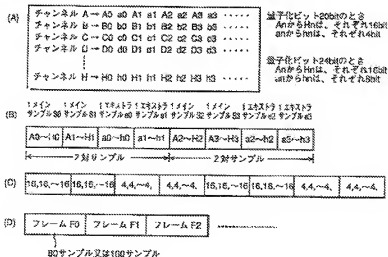 (A)
チャンネル A→A0 a0 A1 a1 A2 a2 A3 a3 ‥‥‥
チャンネル B→B0 b0 B1 b1 B2 b2 B3 b3 ‥‥‥
チャンネル C→C0 c0 C1 c1 C2 c2 C3 c3 ‥‥‥
チャンネル D→D0 d0 D1 d1 D2 d2 D3 d3 ‥‥‥
チャンネル H→H0 h0 H1 h1 H2 h2 H3 h3 ‥‥‥
量子化ビット20bitのとき
AnからHnは、それぞれ16bit
anからhnは、それぞれ4bit
量子化ビット24bitのとき
AnからHnは、それぞれ16bit
anからhnは、それぞれ8bit
(B)
1メイン 1メイン 1エキストラ 1エキストラ 1メイン 1メイン 1エキストラ 1エキストラ
サンプルS0 サンプルS1 サンプルe0 サンプルe1 サンプルS2 サンプルS3 サンプルe2 サンプルe3
A0~H0 A1~H1 a0~h0 a1~h1 A2~H2 A3~H3 a2~h2 a3~h3
2対サンプル 2対サンプル
(C)
16,16,~16 16,16,~16 4,4,~4, 4,4,~4, 16,16,~16 16,16,~16 4,4,~4, 4,4,~4,
(D)
フレーム F0 フレーム F1 フレーム F2 ‥‥‥
80サンプル又は160サンプル